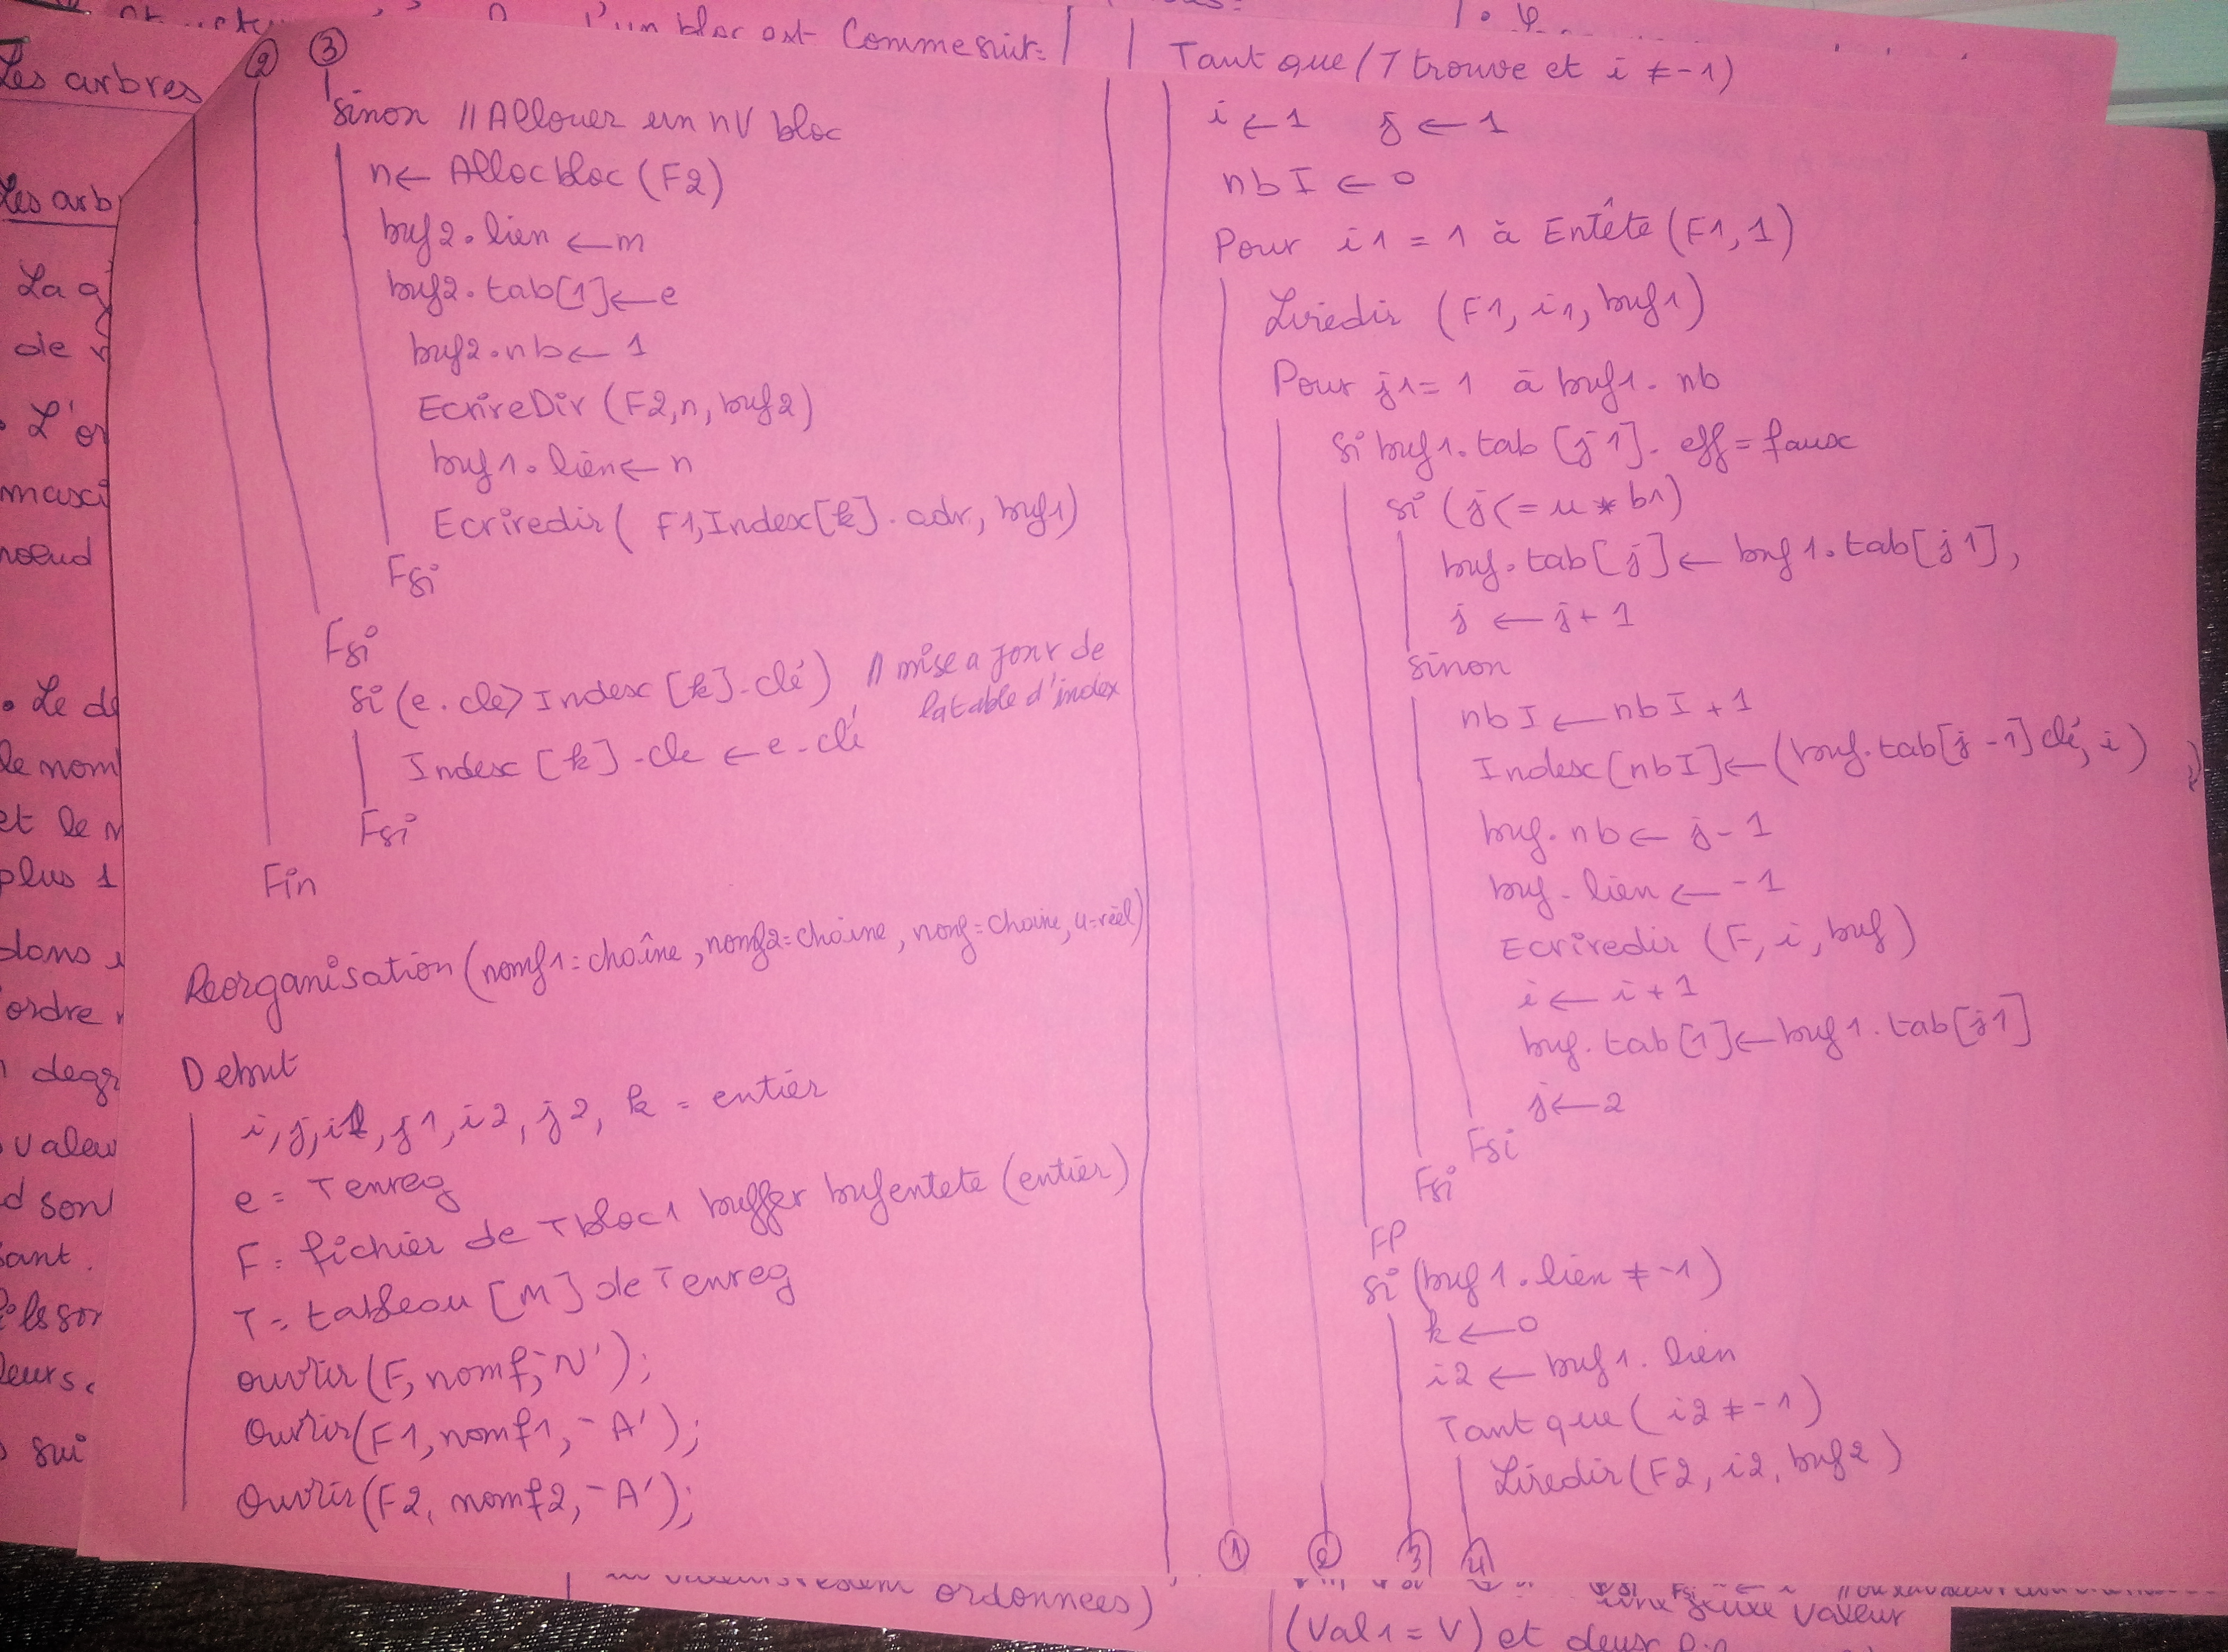 l'un bloc est Comme suit:
Les arbres
Les arb
La g
de
L'or
maxi
noeud
• Le de
le nom
et le
plus 1
dans
ordre
degr
valeu
d son
sant.
ils sor
leurs.
sui
② ③
Sinon // Allouer un nv bloc
n ← Allocbloc (F2)
buf2.lien ← m
buf2.tab[1] ← e
buf2.nb ← 1
EcrireDir (F2, n, buf2)
buf1.lien ← n
Ecriredir ( F1, Index[k].adr, buf1)
Fsi
Fsi
si (e.cle > Index [k].clé) // mise a jour de
la table d'index
Index [k].cle ← e.clé
Fsi
Fin
Reorganisation (nomf1=chaîne, nomf2=chaine, nomf=chaine, u=réel)
Debut
i, j, i1, j1, i2, j2, k = entier
e = Tenreg
F = fichier de Tbloc1 buffer bufentete (entier)
T = tableau [M] de Tenreg
ouvrir (F, nomf, 'N');
Ouvrir (F1, nomf1, 'A');
Ouvrir (F2, nomf2, 'A');
Tant que (7 trouve et i ≠ -1)
i ← 1 j ← 1
nbI ← 0
Pour i1 = 1 à Entête (F1, 1)
Liredir (F1, i1, buf1)
Pour j1 = 1 à buf1.nb
si buf1.tab [j1].eff = faux
si (j <= u * b1)
buf.tab [j] ← buf1.tab[j1],
j ← j + 1
sinon
nbI ← nbI + 1
Index [nbI] ← (buf.tab[j-1]clé, i)
buf.nb ← j - 1
buf.lien ← -1
Ecriredir (F, i, buf)
i ← i + 1
buf.tab [1] ← buf1.tab[j1]
j ← 2
Fsi
Fsi
FP
si (buf1.lien ≠ -1)
k ← 0
i2 ← buf1.lien
Tant que ( i2 ≠ -1 )
Liredir (F2, i2, buf2)
① ② ③ ④
ordonnees)
valeur
(Val1 = V) et deux